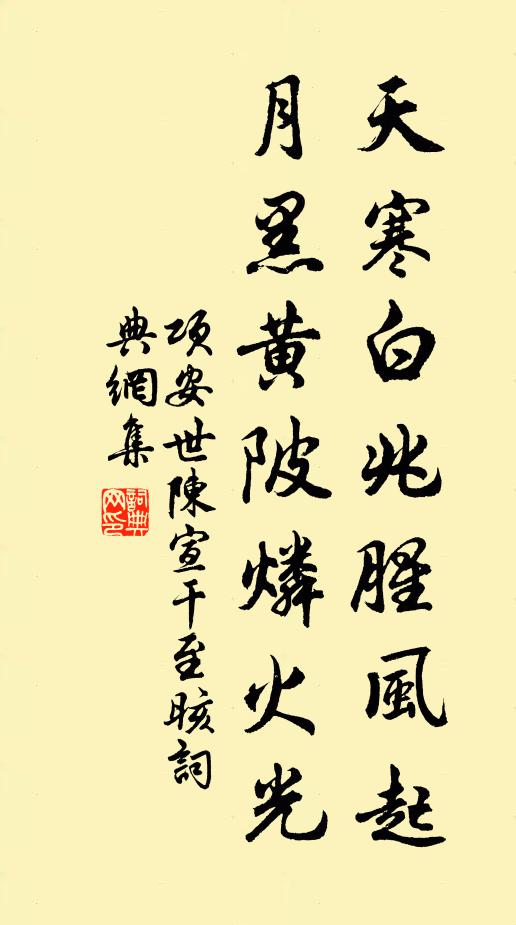 天寒白兆腥風起
月黑黃陂燐火光
項安世陳宣干至眩詞
典網集
詞典網印